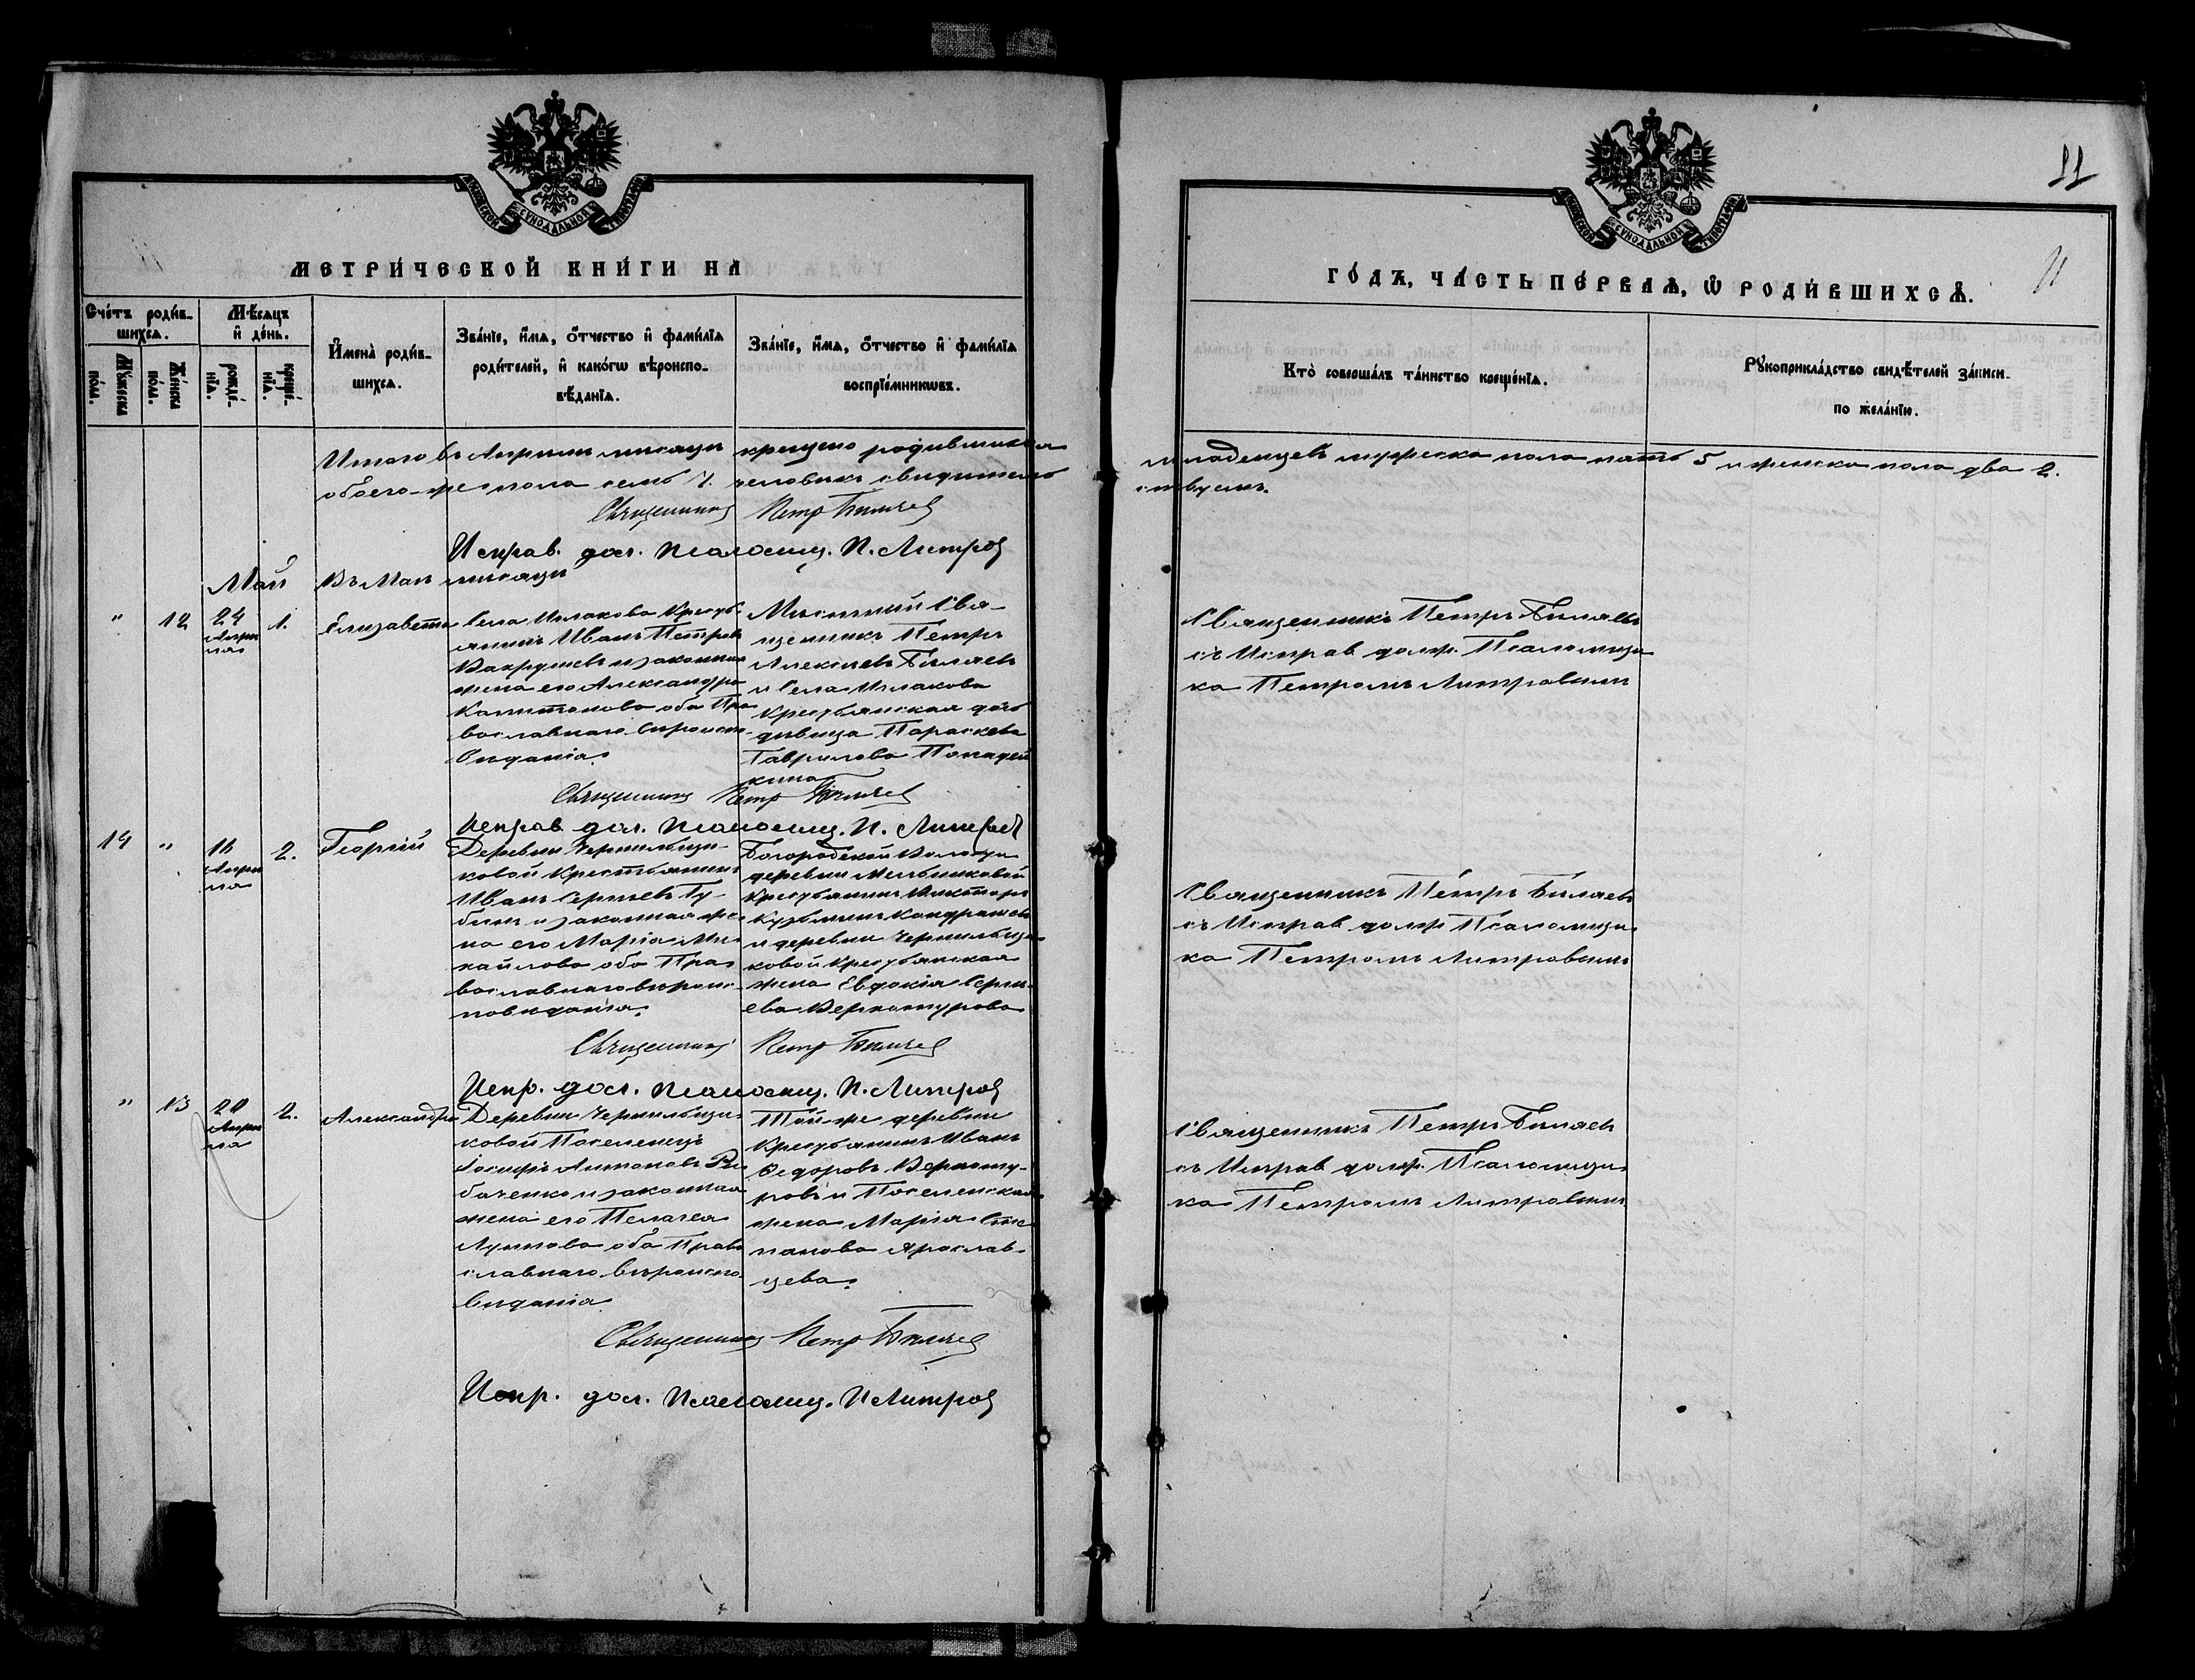 11
МЕТРИ́ЧЕСКОЙ КНИ́ГИ НА
ГО́ДЪ, ЧА́СТЬ ПЕ́РВАѦ, Ѡ҆ РОДИ́ВШИХСѦ.
11
Сче́тъ роди́в-
шихсѧ.
Мꙋ́жеска по́ла.
Же́нска по́ла.
Мѣ́сѧцъ
и҆ де́нь.
рожде́-нїѧ.
креще́-нїѧ.
И҆мена̀ роди́в-
шихсѧ.
Зва́нїе, и҆́мѧ, ѻ҆́тчество и҆ фами́лїѧ
роди́телей, и҆ како́гѡ вѣ̀роиспо-
вѣ́данїѧ.
Зва́нїе, и҆́мѧ, ѻ҆́тчество и҆ фами́лїѧ
воспрїе́мникѡвъ.
Кто̀ соверша́лъ та́инство креще́нїѧ.
Рꙋкоприкла́дство свидѣ́телей за́писи
по жела́нїю.
Итого въ Апрѣлѣ мѣсяцѣ крещено родившихся младенцевъ мужеска пола пять 5 и женска пола два 2.
обоего же пола семь 7. человѣкъ свидѣтельствуемъ.
Священникъ Петръ Бѣляевъ
Исправ. дол. псаломщ. П. Литровъ
Май
Въ Маѣ мѣсяцѣ
" 12 24 Апрѣля 1. Елизавета
Села Ишакова Кресть-
янинъ Иванъ Петровъ
Вахрушевъ и законная
жена его Александра
Капитонова оба Пра-
вославнаго вѣроиспо-
вѣданія.
Мѣстный Свя-
щенникъ Петръ
Алексѣевъ Бѣляевъ
и Села Ишакова
Крестьянская дочь
дѣвица Параскева
Гаврилова
Священникъ Петръ Бѣляевъ
съ Исправ долж. Псаломщи-
ка Петромъ Литровымъ
Священникъ Петръ Бѣляевъ
Исправ дол. псаломщ. П. Литровъ
14 " 16 Апрѣля 2. Георгій
Деревни
ковой Крестьянинъ
Иванъ Сергѣевъ Гу-
бинъ и законная же-
на его Марія Ми-
хайлова оба Пра-
вославнаго вѣроис-
повѣданія.
Богородской Волости
деревни Мельниковой
Крестьянинъ Викторъ
Кузьминъ Кондрашевъ
и деревни
ковой Крестьянская
жена Евдокія Сергѣ-
ева Верхотурова
Священникъ Петръ Бѣляевъ
съ Исправ долж Псаломщи-
ка Петромъ Литровымъ
Священникъ Петръ Бѣляевъ
Испр. дол. псаломщ. П. Литровъ
" 13 20 Апрѣля 2. Александра
Деревни
ковой Поселенецъ
Іосифъ Антоновъ Ри-
баченко и законная
жена его Пелагея
Лукина оба Право
славнаго вѣроиспо-
вѣданія
Той-же деревни
Крестьянинъ Иванъ
Ѳедоровъ Верхоту-
ровъ и Поселенская
жена Марія Сте-
панова Ярослав-
цева.
Священникъ Петръ Бѣляевъ
съ Исправ долж. Псаломщи-
ка Петромъ Литровымъ
Священникъ Петръ Бѣляевъ
Испр. дол. псаломщ. П Литровъ